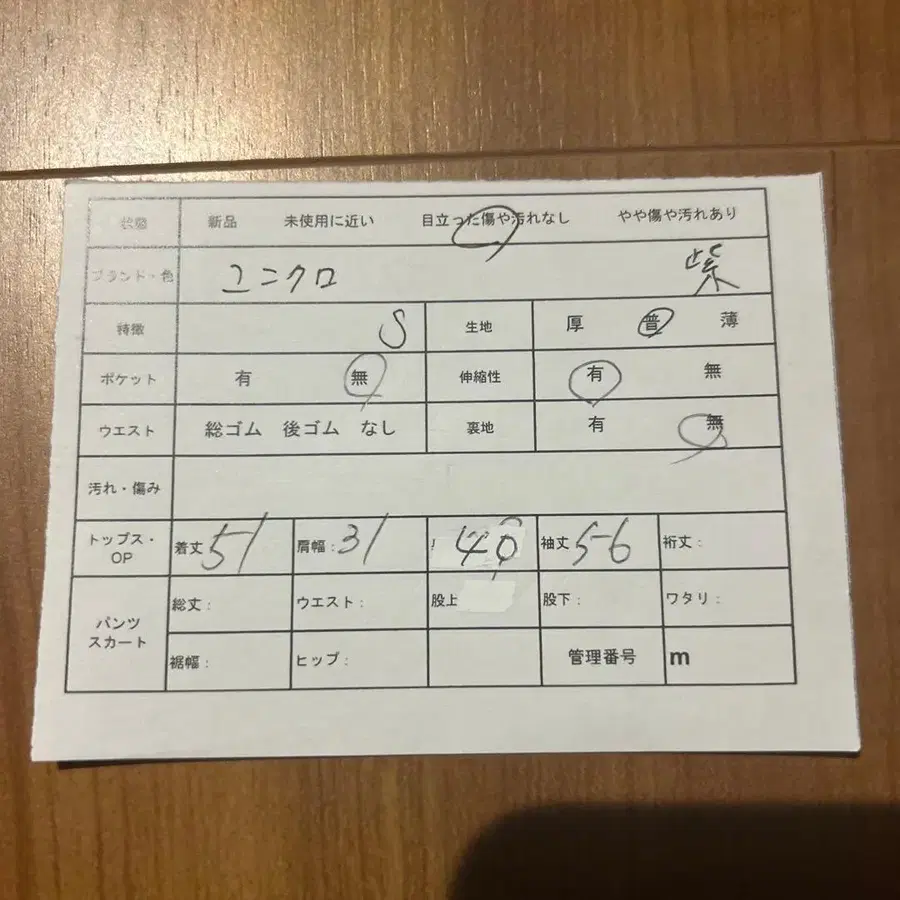 状態 新品 未使用に近い 目立った傷や汚れなし やや傷や汚れあり
ブランド・色 ユニクロ 紫
特徴 S 生地 厚 普 薄
ポケット 有 無 伸縮性 有 無
ウエスト 総ゴム 後ゴム なし 裏地 有 無
汚れ・傷み
トップス・OP 着丈 51 肩幅: 31 40 袖丈 56 裄丈:
パンツ スカート 総丈: ウエスト: 股上 股下: ワタリ:
裾幅: ヒップ: 管理番号 m